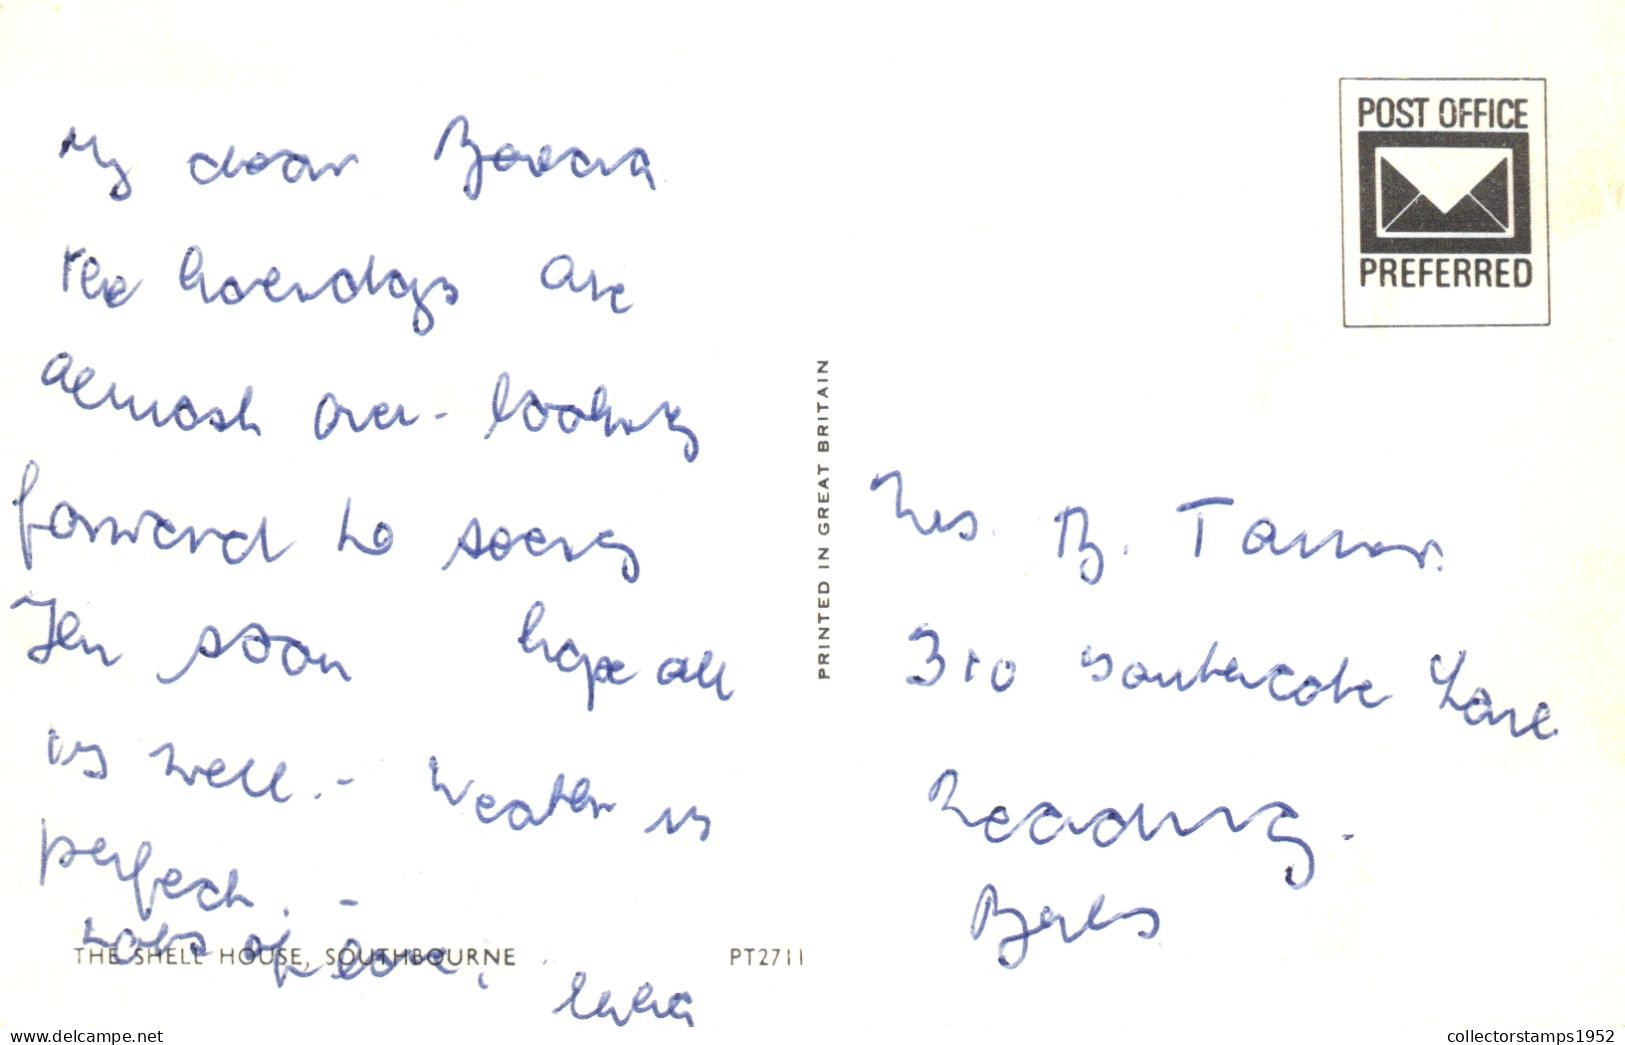 My dear
the holidays are
almost over - looking
forward to seeing
you soon hope all
is well. - Weather is
perfect. -
Lots of love,
THE SHELL HOUSE, SOUTHBOURNE
PT2711
PRINTED IN GREAT BRITAIN
POST OFFICE
PREFERRED
Mrs. B.
310 Southcote Lane
Reading.
Berks
delcampe.net
collectorstamps1952